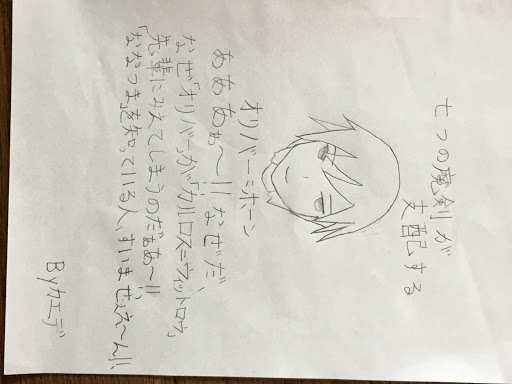 七つの魔剣が
支配する
オリバー=ホーン
あああぁ〜!!なぜだ、
なぜ「オリバー」が「カルロス=ウィットロウ」
先輩にみえてしまうのだぁあ〜!!
「ななつま」を知っている人、すいませぇ〜ん!!
Byカエデ